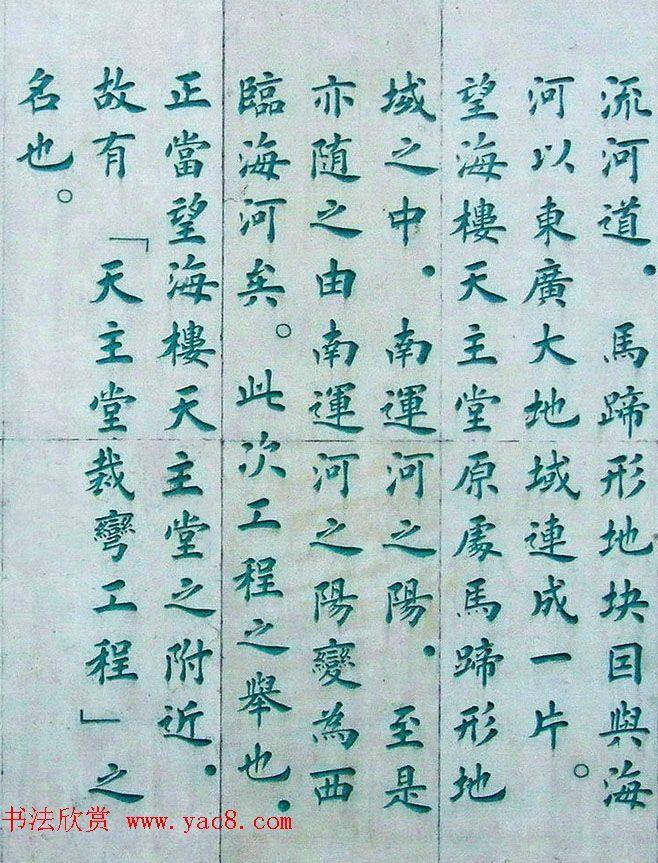 流河道．馬蹄形地块因與海
河以東廣大地域連成一片。
望海樓天主堂原處馬蹄形地
域之中．南運河之陽．至是
亦随之由南運河之陽變為西
臨海河矣。此次工程之舉也．
正當望海樓天主堂之附近．
故有「天主堂裁彎工程」之
名也。
书法欣赏 www.yac8.com